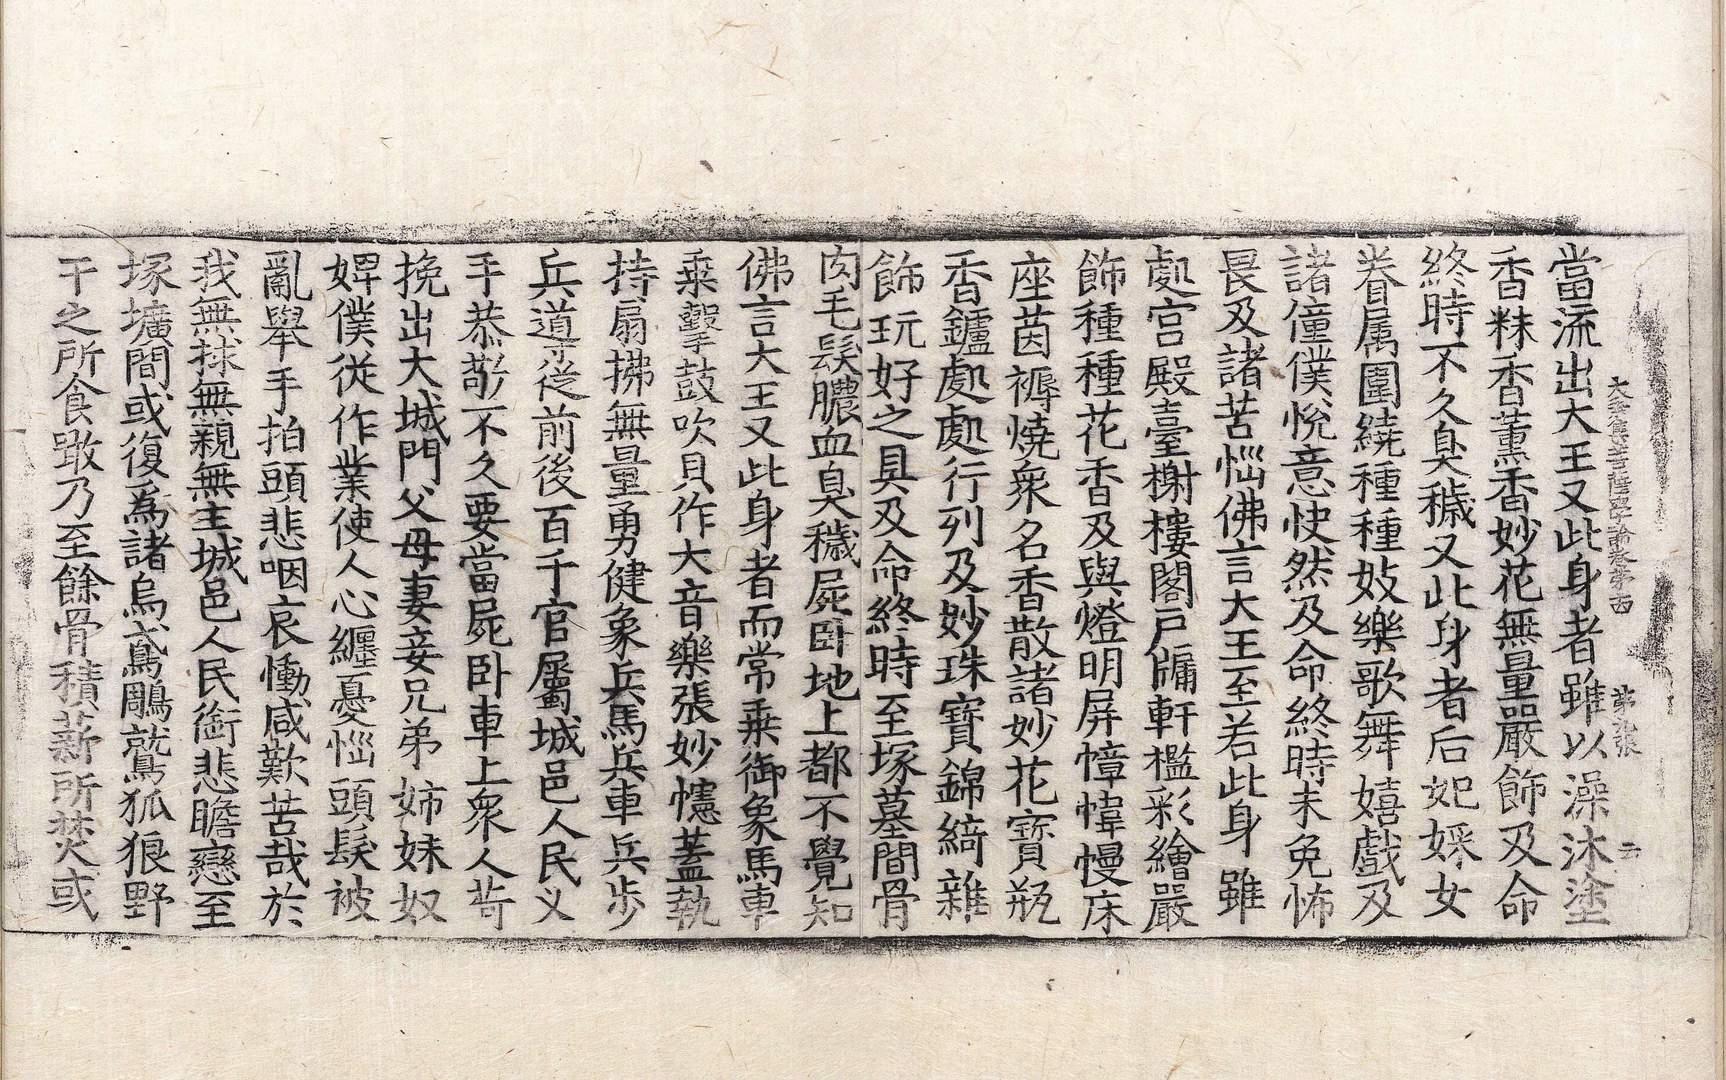 當流出大王又此身者雖以澡沐塗
大乘集菩薩學論卷第四 第九張 云
香粖香薰香妙花無量嚴飾及命
終時不久臭穢又此身者后妃婇女
眷属圍繞種種妓樂歌舞嬉戲及
諸僮僕恱意快然及命終時未免怖
畏及諸苦惱佛言大王至若此身雖
處宮殿臺榭樓閣戶牖軒檻彩繪嚴
飾種種花香及與燈明屏幛幃幔床
座茵褥燒衆名香散諸妙花寶瓶
香鑪處處行列及妙珠寶錦綺雜
飾玩好之具及命終時至塚墓間骨
肉毛髮膿血臭穢屍卧地上都不覺知
佛言大王又此身者而常乗御象馬車
乗擊鼓吹貝作大音樂張妙幰蓋執
持扇拂無量勇健象兵馬兵車兵步
兵道從前後百千官屬城邑人民义
手恭敬不久要當屍卧車上衆人荷
挽出大城門父母妻妾兄弟姉妹奴
婢僕從作業使人心纏憂惱頭髮被
亂舉手拍頭悲咽哀慟咸歎苦哉於
我無捄無親無主城邑人民銜悲瞻戀至
塚壙間或復爲諸烏鳶鵰鷲狐狼野
干之所食噉乃至餘骨積薪所焚或